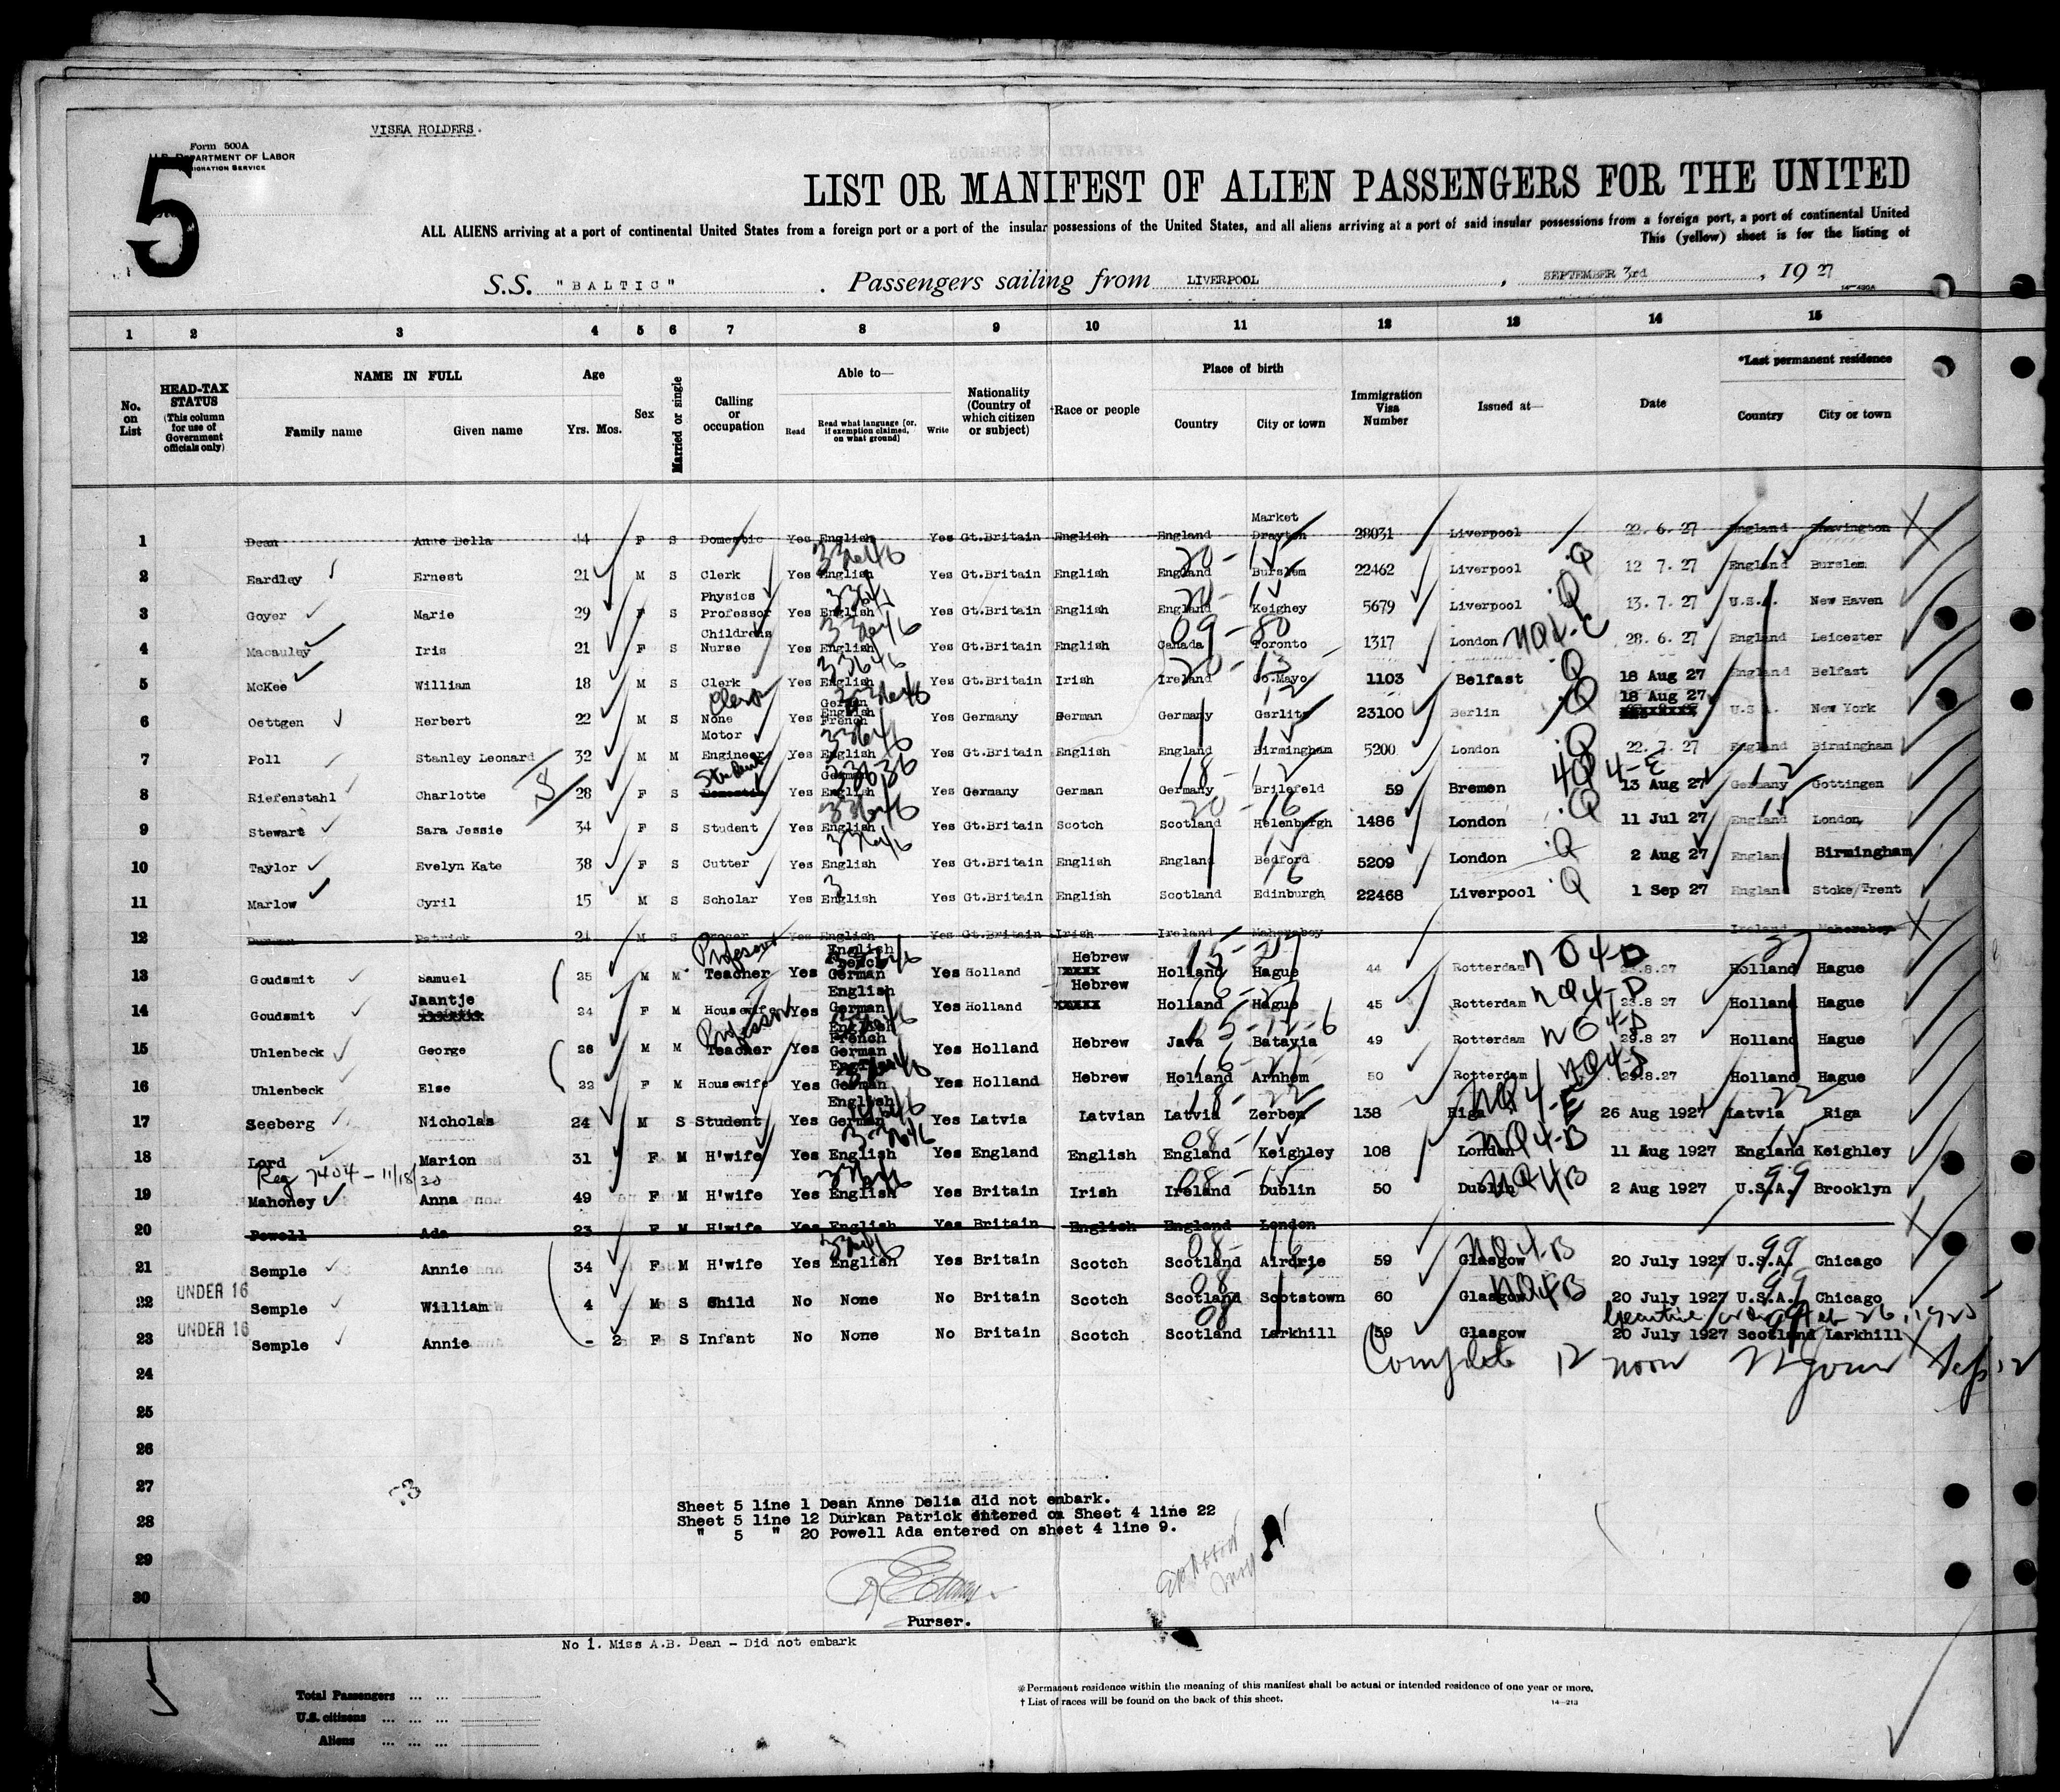 VISEA HOLDERS.
Form 500A
U.S. DEPARTMENT OF LABOR
IMMIGRATION SERVICE
5
LIST OR MANIFEST OF ALIEN PASSENGERS FOR THE UNITED
ALL ALIENS arriving at a port of continental United States from a foreign port or a port of the insular possessions of the United States, and all aliens arriving at a port of said insular possessions from a foreign port, a port of continental United
This (yellow) sheet is for the listing of
S.S. "BALTIC" . Passengers sailing from LIVERPOOL , SEPTEMBER 3rd , 19 27
1 2 3 4 5 6 7 8 9 10 11 12 13 14 15
No. on List HEAD-TAX STATUS (This column for use of Government officials only) NAME IN FULL Family name Given name Age Yrs. Mos. Sex Married or single Calling or occupation Able to— Read Read what language [or, if exemption claimed, on what ground] Write Nationality (Country of which citizen or subject) †Race or people Place of birth Country City or town Immigration Visa Number Issued at— Date *Last permanent residence Country City or town
1 Dean Anne Bella 44 F S Domestic Yes English Yes Gt.Britain English England Market Drayton 28031 Liverpool 22. 6. 27 England Shavington X
2 Eardley Ernest 21 M S Clerk Yes English Yes Gt.Britain English England Burslem 22462 Liverpool Q 12 7. 27 England Burslem
3 Goyer Marie 29 F S Physics Professor Yes English Yes Gt.Britain English England Keighey 5679 Liverpool Q 13. 7. 27 U.S.A. New Haven
4 Macauley Iris 21 F S Childrens Nurse Yes English Yes Gt.Britain English Canada Toronto 1317 London 28. 6. 27 England Leicester
5 McKee William 18 M S Clerk Yes English Yes Gt.Britain Irish Ireland Co.Mayo 1103 Belfast Q 18 Aug 27 England Belfast
6 Oettgen Herbert 22 M S Clerk None Yes German English French Yes Germany German Germany Gorlitz 23100 Berlin Q 18 Aug 27 U.S.A. New York
7 Poll Stanley Leonard 32 M M Motor Engineer Yes English Yes Gt.Britain English England Birmingham 5200 London Q 22. 7. 27 England Birmingham
8 Riefenstahl Charlotte 28 F S Student Domestic Yes German English Yes Germany German Germany Brilefeld 59 Bremen 13 Aug 27 Germany Gottingen
9 Stewart Sara Jessie 34 F S Student Yes English Yes Gt.Britain Scotch Scotland Helenburgh 1486 London Q 11 Jul 27 England London
10 Taylor Evelyn Kate 38 F S Cutter Yes English Yes Gt.Britain English England Bedford 5209 London Q 2 Aug 27 England Birmingham
11 Marlow Cyril 15 M S Scholar Yes English Yes Gt.Britain English Scotland Edinburgh 22468 Liverpool Q 1 Sep 27 England Stoke/Trent
12 Durkan Patrick 21 M S Grocer Yes English Yes Gt.Britain Irish Ireland X
13 Goudsmit Samuel 25 M M Professor Teacher Yes English French German Yes Holland Hebrew Holland Hague 44 Rotterdam NQ4-D 23.8.27 Holland Hague
14 Goudsmit Jaantje 24 F M Housewife Yes English German Yes Holland Hebrew Holland Hague 45 Rotterdam NQ4-D 23.8 27 Holland Hague
15 Uhlenbeck George 26 M M Professor Teacher Yes English French German Yes Holland Hebrew Java Batavia 49 Rotterdam NQ4-D 29.8 27 Holland Hague
16 Uhlenbeck Else 22 F M Housewife Yes English German Yes Holland Hebrew Holland Arnhem 50 Rotterdam NQ4-D 29.8.27 Holland Hague
17 Seeberg Nicholas 24 M S Student Yes English German Yes Latvia Latvian Latvia Zerben 138 Riga NQ4-E 26 Aug 1927 Latvia Riga
18 Lord Marion 31 F M H'wife Yes English Yes England English England Keighley 108 London NQ4-B 11 Aug 1927 England Keighley
Reg 7404 - 11/18/30
19 Mahoney Anna 49 F M H'wife Yes English Yes Britain Irish Ireland Dublin 50 Dublin NQ4B 2 Aug 1927 U.S.A. Brooklyn
20 Powell Ada 23 F M H'wife Yes English Yes Britain English England London X
21 Semple Annie 34 F M H'wife Yes English Yes Britain Scotch Scotland Airdrie 59 Glasgow NQ4-B 20 July 1927 U.S.A. Chicago
UNDER 16
22 Semple William 4 M S Child No None No Britain Scotch Scotland Scotstown 60 Glasgow NQ4B 20 July 1927 U.S.A. Chicago
UNDER 16
Executive order Feb 26, 1925
23 Semple Annie - 2 F S Infant No None No Britain Scotch Scotland Larkhill 59 Glasgow 20 July 1927 Scotland Larkhill
24 Complete 12 noon
25
26
27
28
29
30
Sheet 5 line 1 Dean Anne Delia did not embark.
Sheet 5 line 12 Durkan Patrick entered on Sheet 4 line 22
" 5 " 20 Powell Ada entered on sheet 4 line 9.
Purser.
No 1. Miss A.B. Dean - Did not embark
Total Passengers ... ...
U.S. citizens ... ... ...
Aliens ... ... ...
*Permanent residence within the meaning of this manifest shall be actual or intended residence of one year or more.
† List of races will be found on the back of this sheet.
14—213